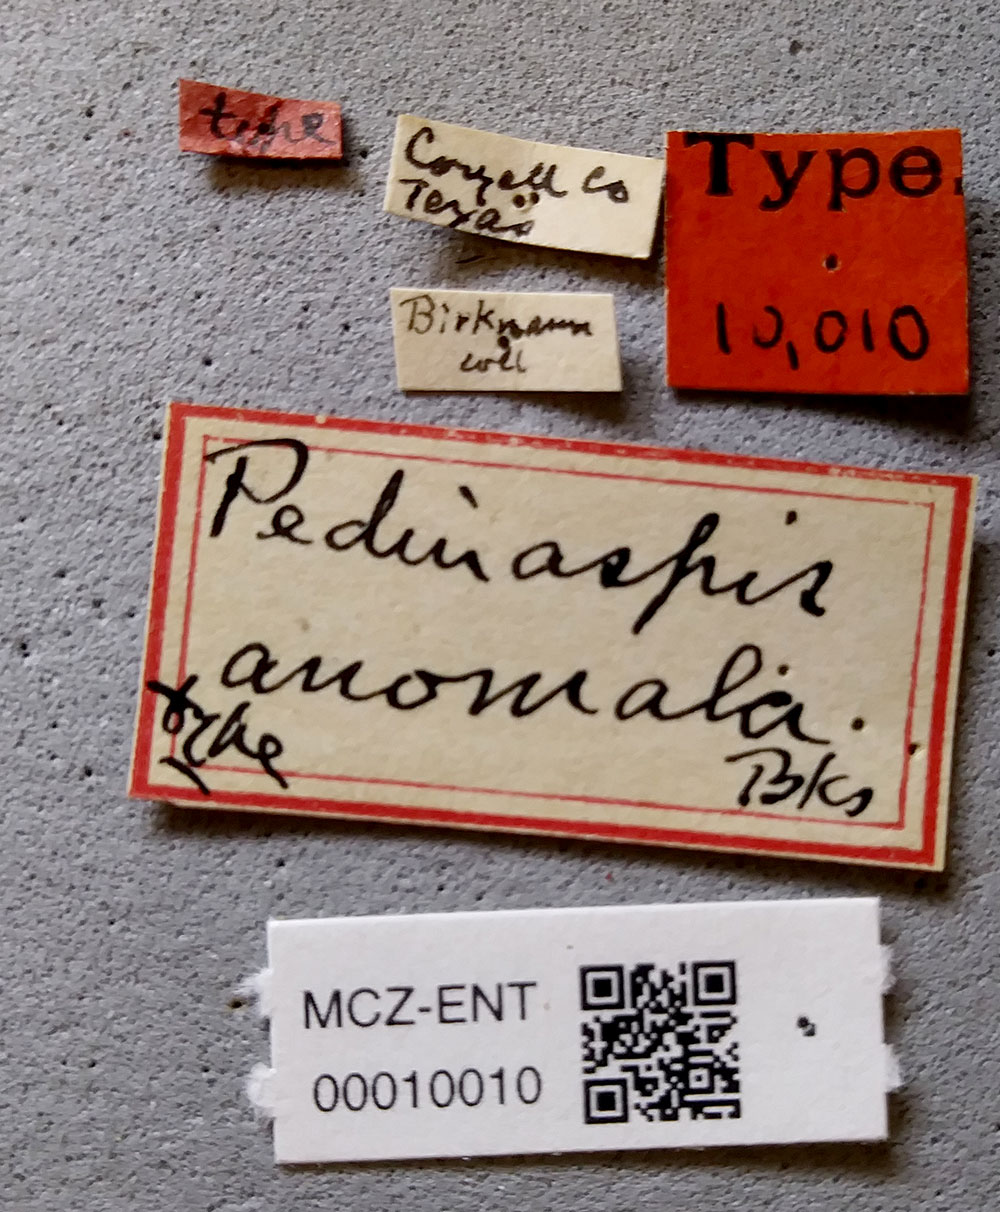 type
Coryell Co
Texas
Type.
10,010
Birkmann
coll
Pedinaspis
anomala.
type
Bks
MCZ-ENT
00010010